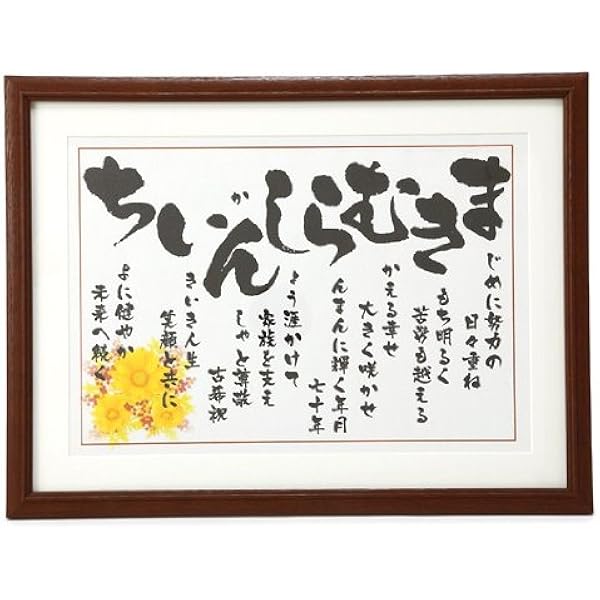 まきむらしんいち
か
じめに努力の
日々重ね
もち明るく
苦労も越える
かえる幸せ
大きく咲かせ
んまんに輝く年月
七十年
ょう涯かけて
家族を支え
しゃと尊敬
古希祝
きいき人生
笑顔と共に
よに健やか
未来へ続く